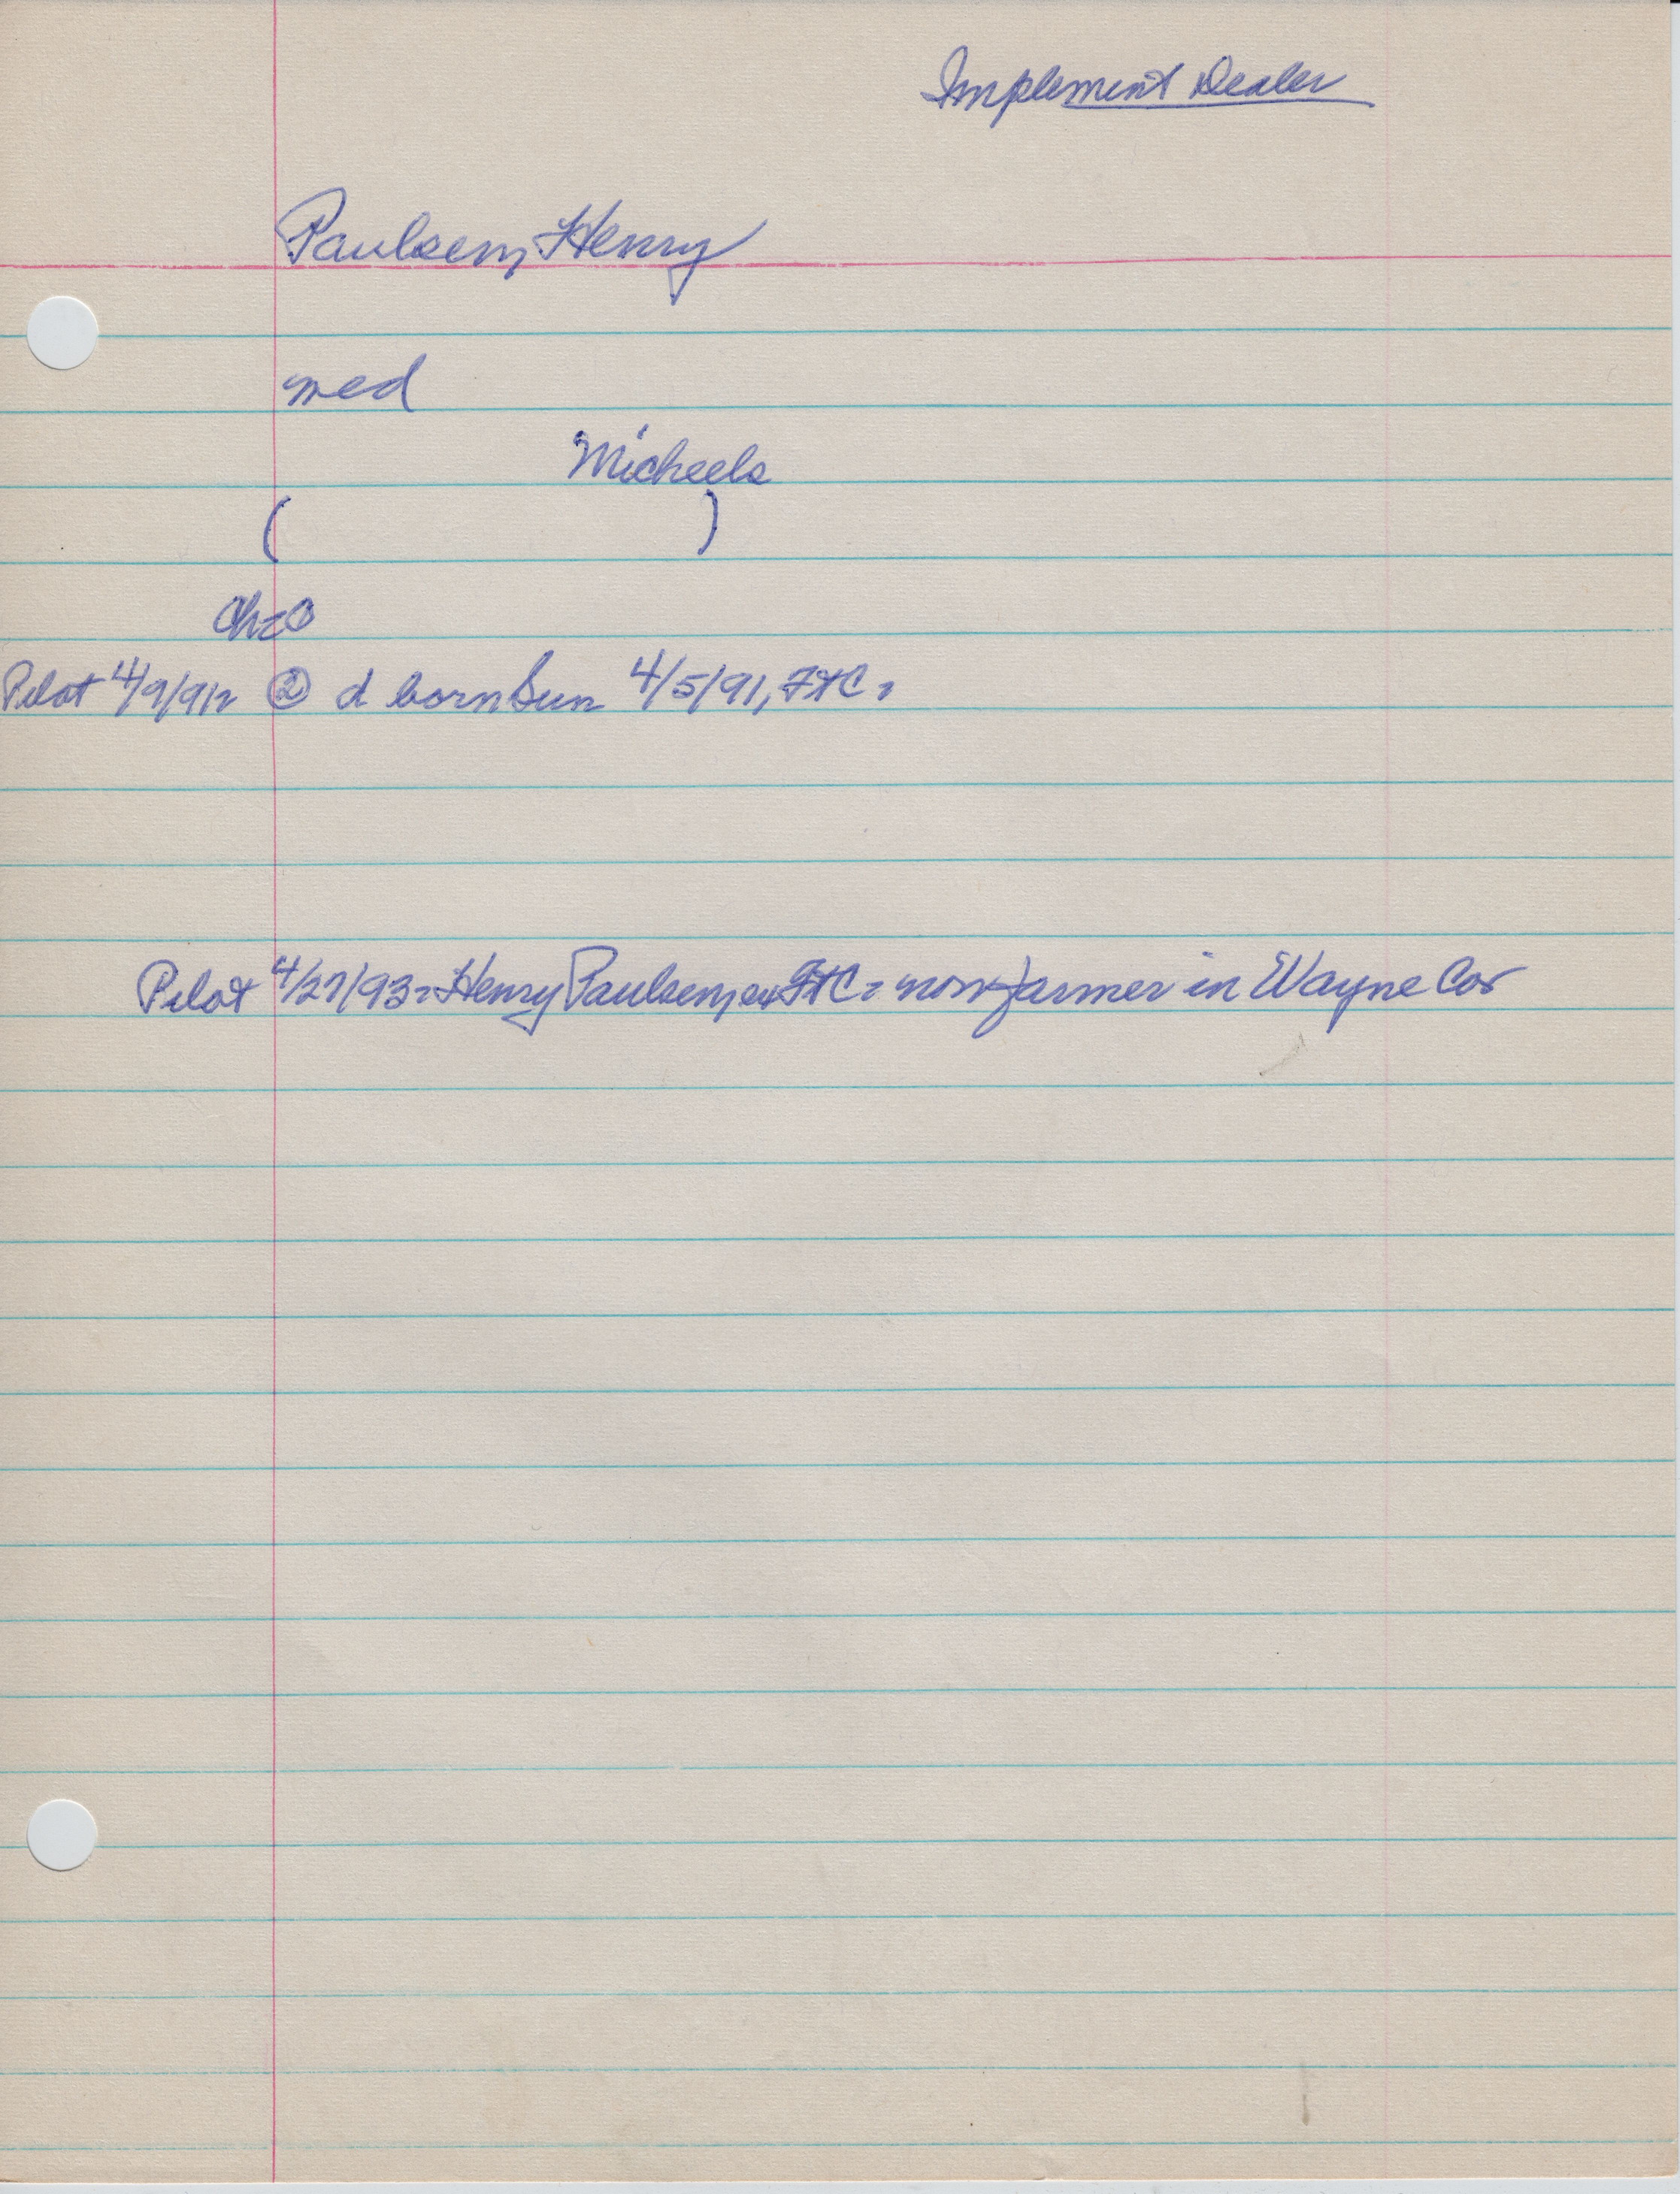 Implement Dealer
Paulsen, Henry
med
Micheels
( )
Ch=0
Pilot 4/9/91= ② d born Sun 4/5/91, FtC=
Pilot 4/27/93= Henry Paulsen, ex FtC= now farmer in Wayne Co=